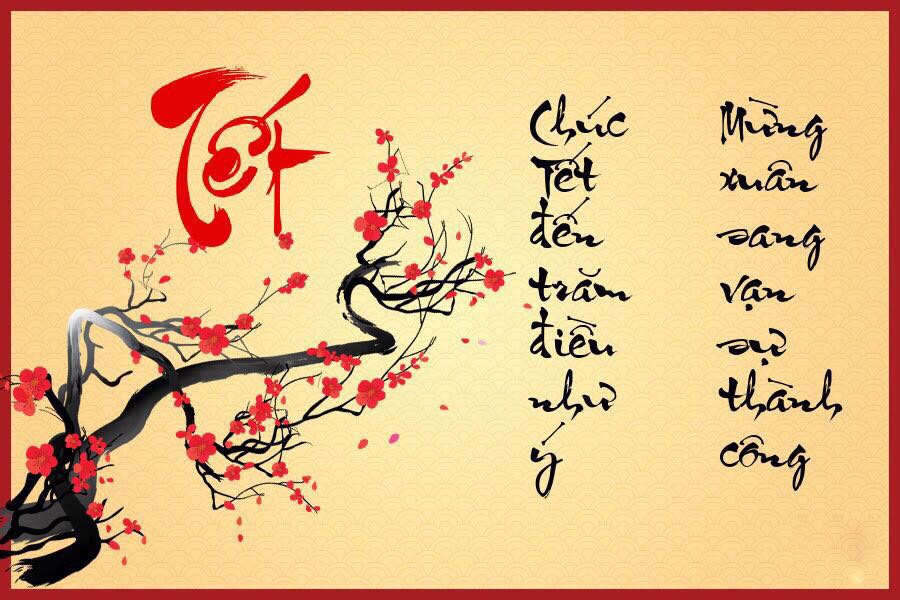 Tết
Chúc
Tết
đến
trăm
điều
như
ý
Mừng
xuân
sang
vạn
sự
thành
công